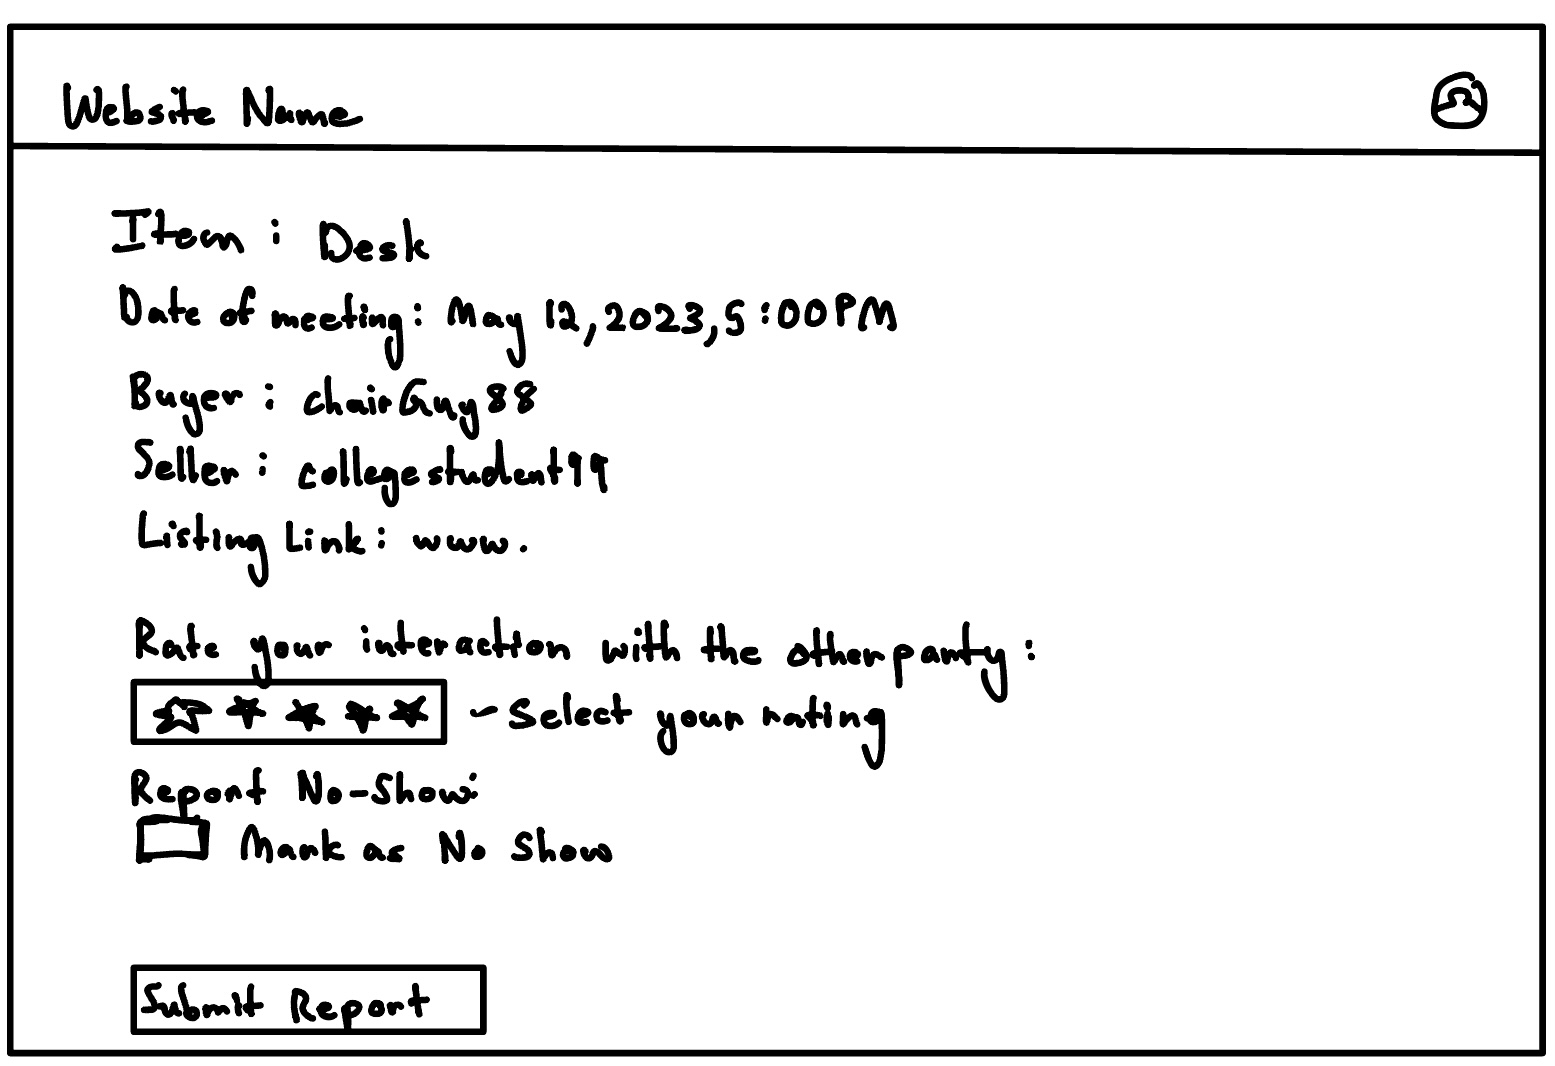 Website Name
Item : Desk
Date of meeting: May 12, 2023, 5:00 PM
Buyer : chairGuy88
Seller : collegestudent99
Listing Link: www.
Rate your interaction with the other party :
- Select your rating
Report No-Show:
Mark as No Show
Submit Report